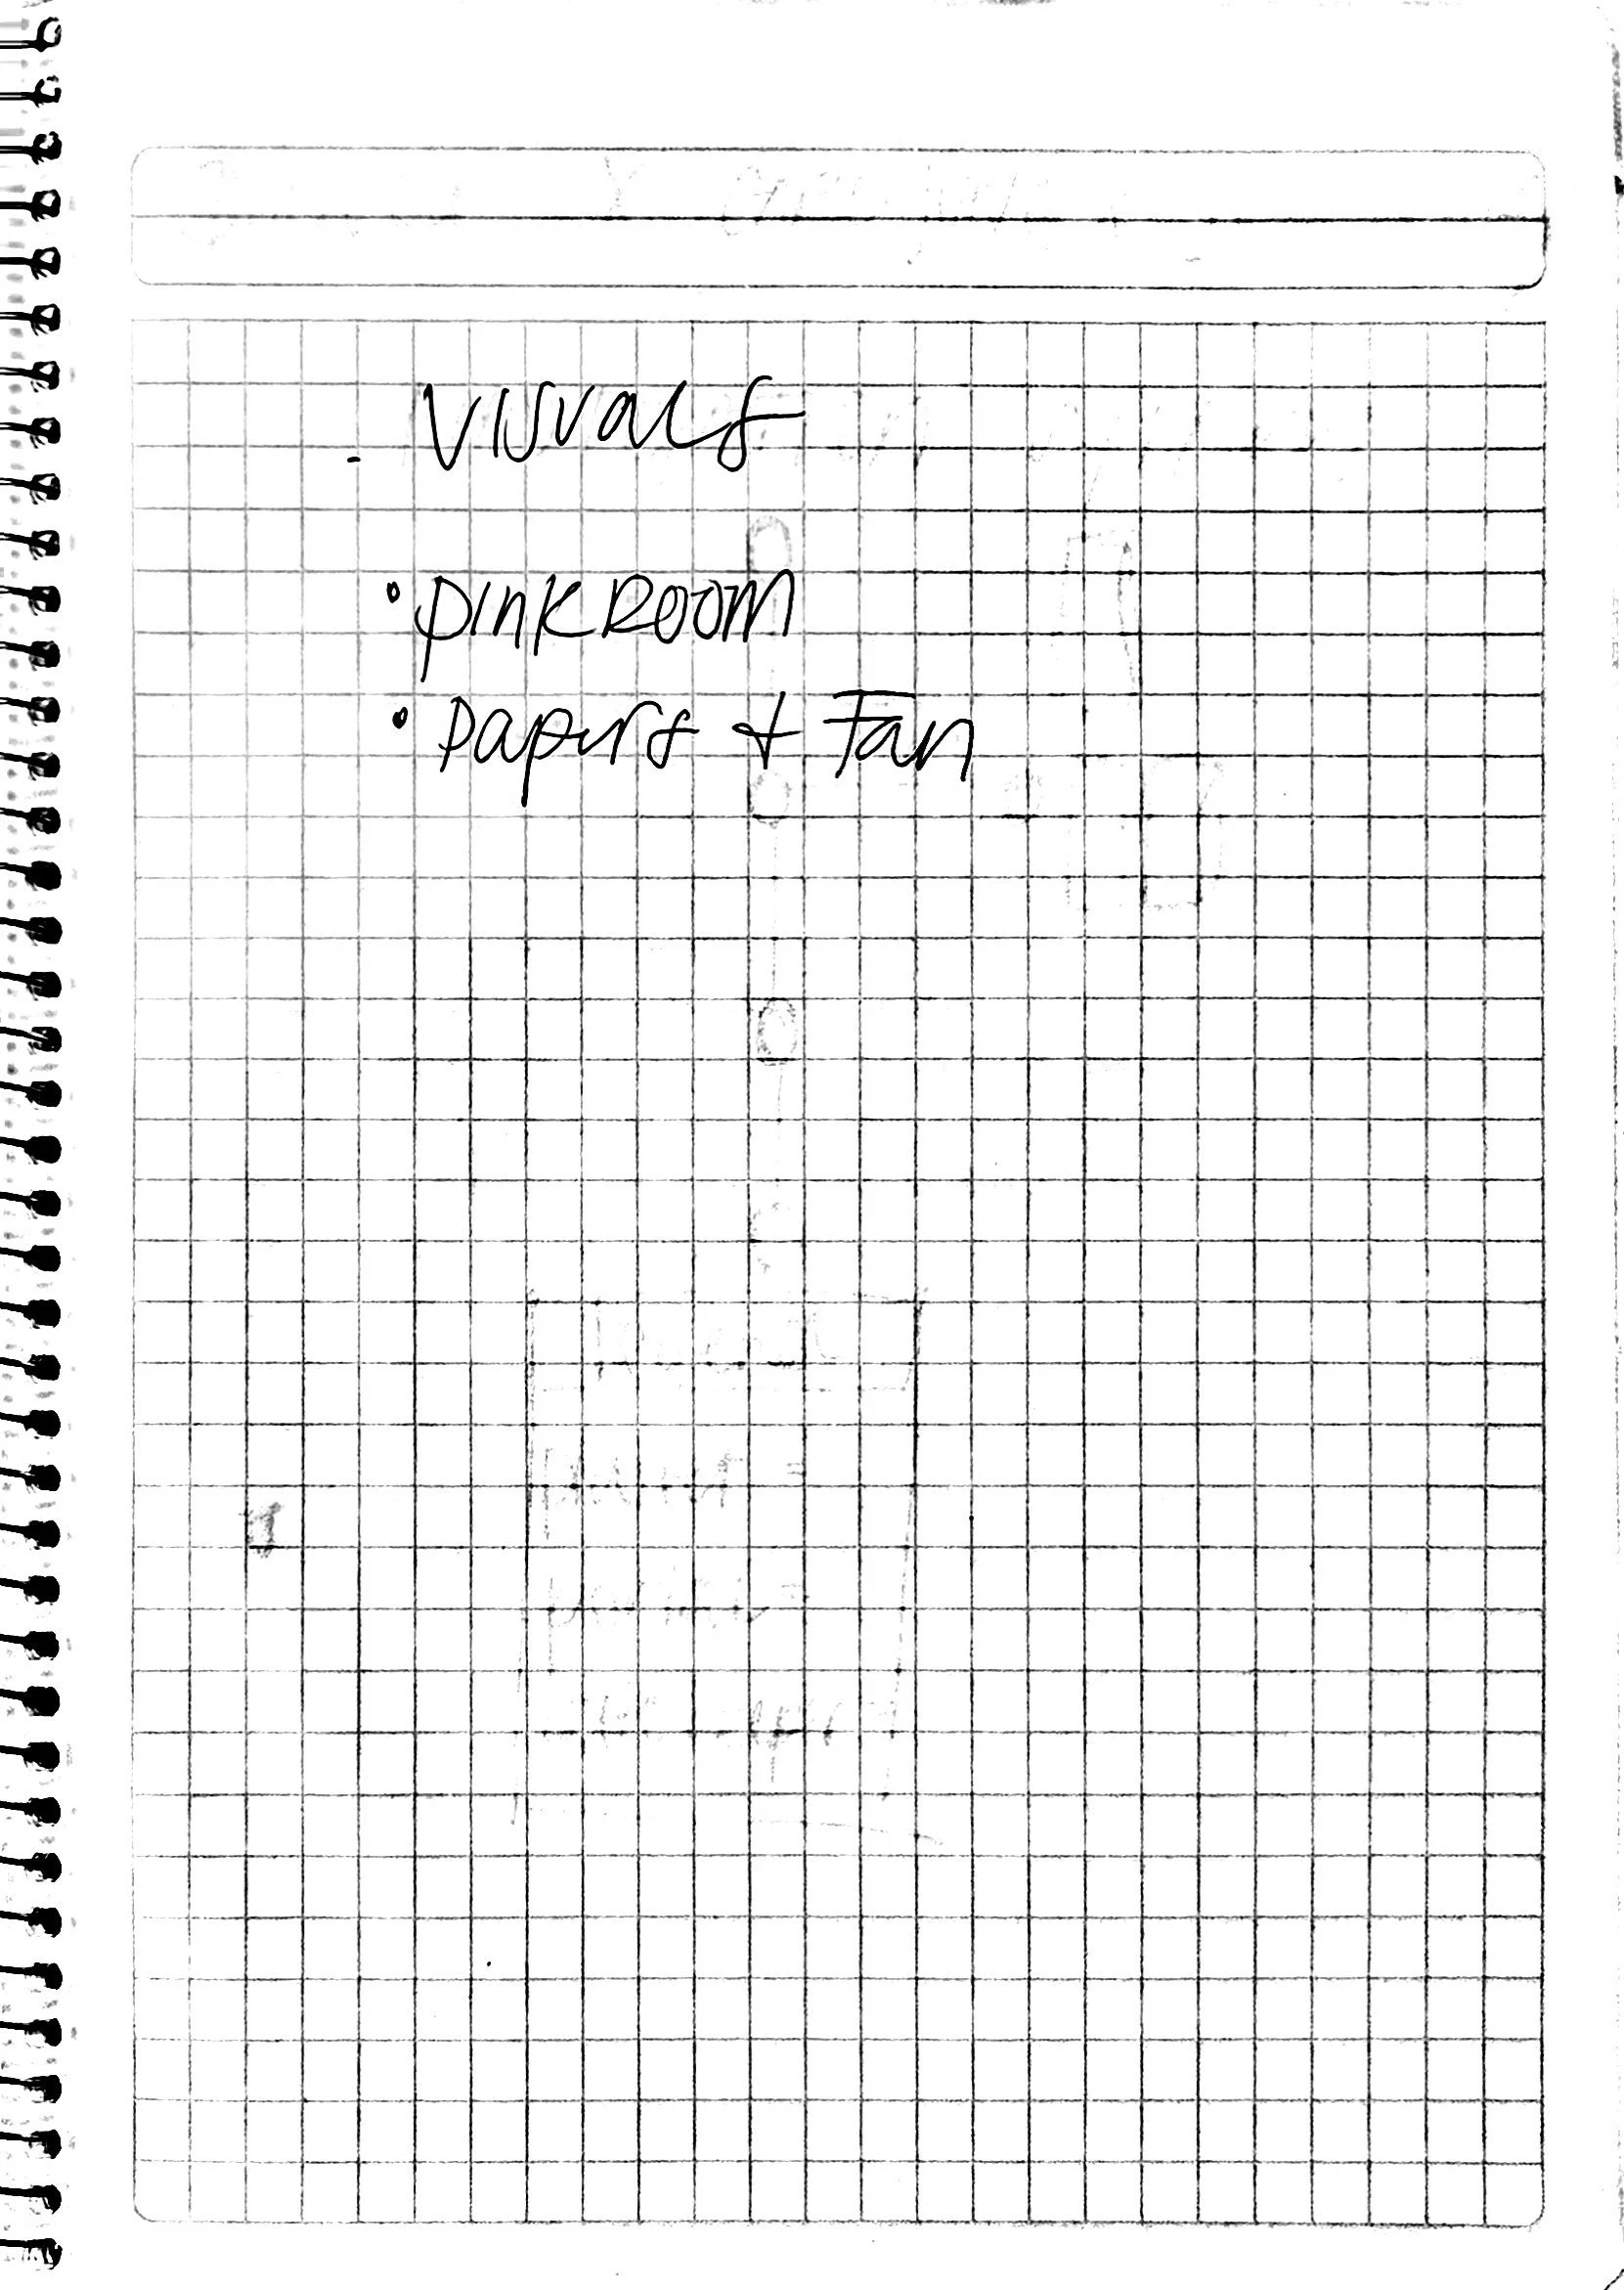 - Visuals
• pink ROOM
• Papers + Fan